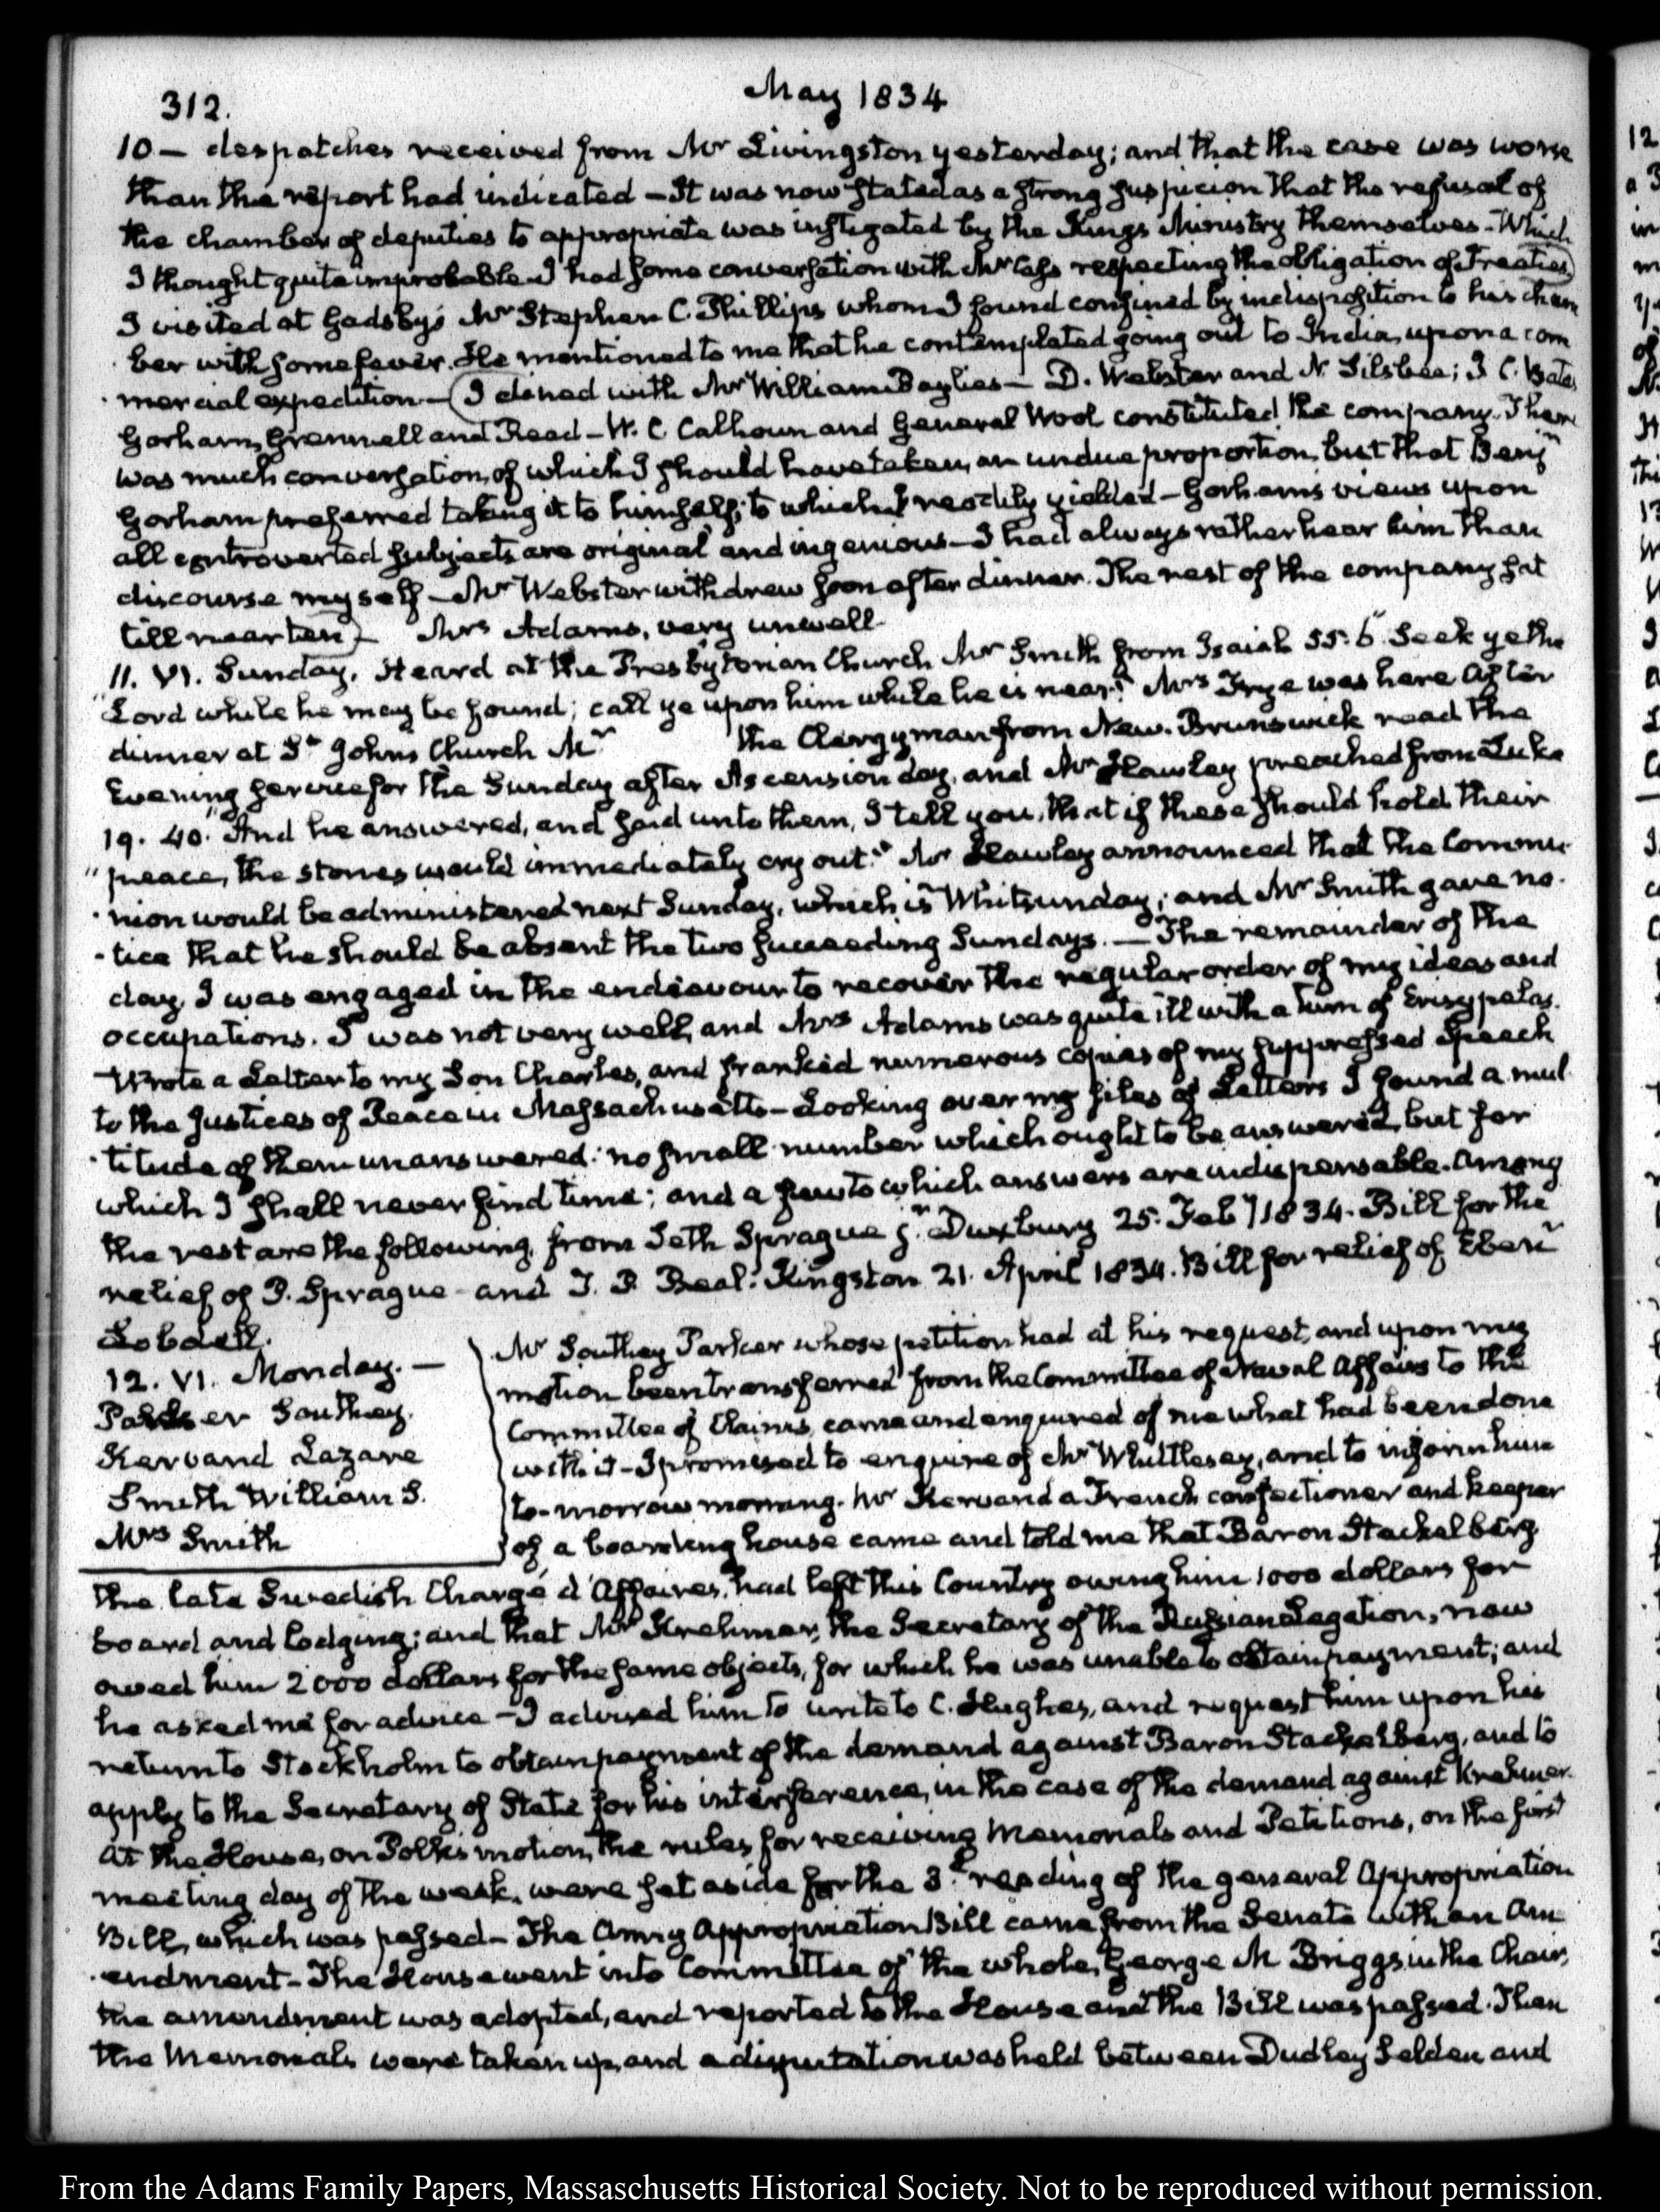 312.
May 1834
10 — despatches received from Mr Livingston yesterday; and that the case was worse
than the report had indicated — It was now stated as a strong suspicion that the refusal of
the chamber of deputies to appropriate was instigated by the Kings Ministry themselves — Which
I thought quite improbable — I had some conversation with Mr Cass respecting the obligation of Treaties)
I visited at Gadsby's Mr Stephen C. Phillips whom I found confined by indisposition to his cham
ber with some fever. He mentioned to me that he contemplated going out to India, upon a com
mercial expedition — (I dined with Mr William Baylies — D. Webster and N. Silsbee; I C. Bates
Gorham, Grennell and Reed — W. C. Calhoun and General Wool constituted the company. There
was much conversation, of which I should have taken, an undue proportion, but that Benjn
Gorham preferred taking it to himself; to which I readily yielded — Gorham's views upon
all controverted subjects are original and ingenious — I had always rather hear him than
discourse myself — Mr Webster withdrew soon after dinner. The rest of the company sat
till near ten) — Mrs Adams, very unwell.
11. VI. Sunday. Heard at the Presbyterian Church Mr Smith from Isaiah 55. 6. Seek ye the
"Lord while he may be found; call ye upon him while he is near." Mrs Frye was here After
dinner at St Johns Church Mr the Clergyman from New-Brunswick read the
Evening service for the Sunday after Ascension day, and Mr Hawley preached from Luke
19. 40. "And he answered, and said unto them, I tell you, that if these should hold their
"peace, the stones would immediately cry out." Mr Hawley announced that the Commu-
nion would be administered next Sunday, which is Whitsunday; and Mr Smith gave no-
tice that he should be absent the two succeeding Sundays. — The remainder of the
day, I was engaged in the endeavour to recover the regular order of my ideas and
occupations. I was not very well, and Mrs Adams was quite ill with a turn of Erisypelas.
—Wrote a Letter to my Son Charles, and franked numerous copies of my suppressed Speech
to the Justices of Peace in Massachusetts — Looking over my files of Letters I found a mul-
titude of them unanswered: no small number which ought to be answered, but for
which I shall never find time; and a few to which answers are indispensable. Among
the rest are the following, from Seth Sprague jr. Duxbury 25. Feby 1834. Bill for the
relief of P. Sprague — and T. P. Beal. Kingston 21. April 1834. Bill for relief of Ebenr
Lobdell.
12. VI. Monday. —
Parker Southey.
Kervand Lazare
Smith William S.
Mrs Smith
Mr Southey Parker whose petition had at his request, and upon my
motion been transferred from the Committee of Naval Affairs to the
Committee of Claims, came and enquired of me what had been done
with it — I promised to enquire of Mr Whittlesey, and to inform him
to-morrow morning. Mr Kervand a French confectioner and keeper
of a boarding house came and told me that Baron Stackelberg
the late Swedish Chargé d'Affaires, had left this Country owing him 1000 dollars for
board and lodging; and that Mr Krehmer, the Secretary of the Russian Legation, now
owed him 2000 dollars for the same objects, for which he was unable to obtain payment; and
he asked me for advice — I advised him to write to C. Hughes, and request him upon his
return to Stockholm to obtain payment of the demand against Baron Stackelberg, and to
apply to the Secretary of State for his interference, in the case of the demand against Krehmer.
At the House, on Polk's motion, the rules for receiving Memorials and Petitions, on the first
meeting day of the week, were set aside for the 3d reading of the general Appropriation
Bill, which was passed — The Army Appropriation Bill came from the Senate with an Am
endment — The House went into Committee of the whole, George M Briggs in the Chair,
the amendment was adopted, and reported to the House and the Bill was passed. Then
the Memorials were taken up, and a disputation was held between Dudley Selden and
From the Adams Family Papers, Massachusetts Historical Society. Not to be reproduced without permission.